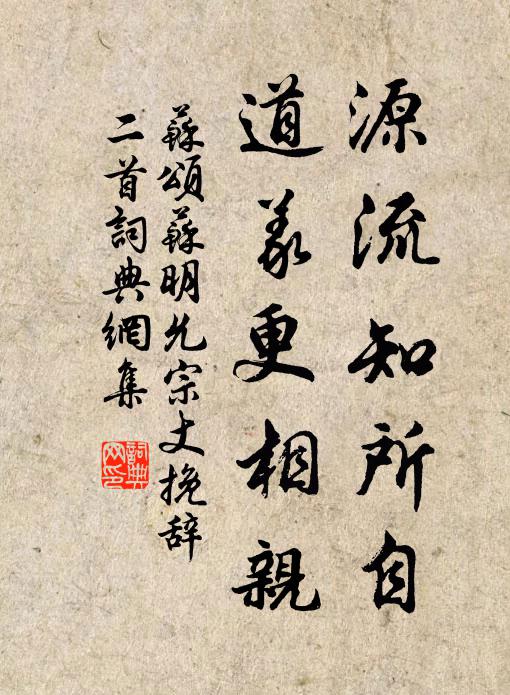 源流知所自
道義更相親
蘇頌蘇明允宗丈挽辞
二首詞典網集
詞典
网印